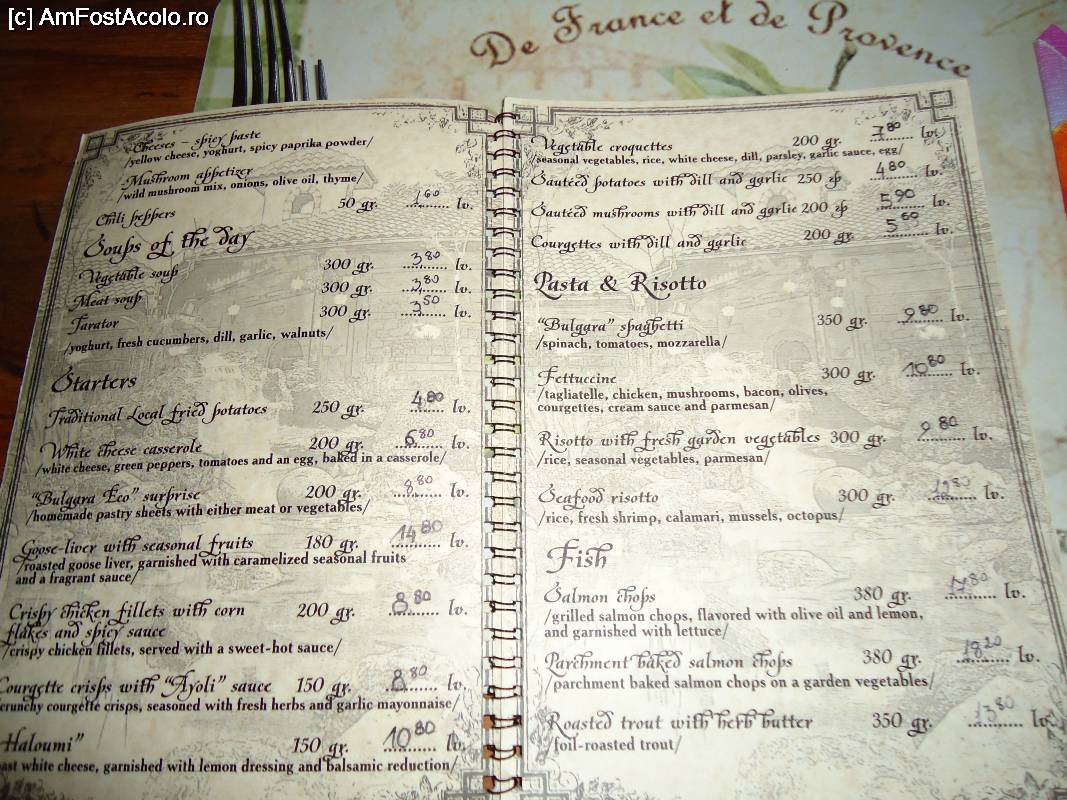 [c] AmFostAcolo.ro
De France et de Provence
Cheeses - spicy paste
/yellow cheese, yoghurt, spicy paprika powder/
Mushroom appetizer
/wild mushroom mix, onions, olive oil, thyme/
Chili peppers 50 gr. 1.60 lv.
Soups of the day
Vegetable soup 300 gr. 3.80 lv.
Meat soup 300 gr. 3.80 lv.
Tarator 300 gr. 3.50 lv.
/yoghurt, fresh cucumbers, dill, garlic, walnuts/
Starters
Traditional Local fried potatoes 250 gr. 4.80 lv.
White cheese casserole 200 gr. 6.80 lv.
/white cheese, green peppers, tomatoes and an egg, baked in a casserole/
"Bulgara Eco" surprise 200 gr. 8.80 lv.
/homemade pastry sheets with either meat or vegetables/
Goose-liver with seasonal fruits 180 gr. 14.80 lv.
/roasted goose liver, garnished with caramelized seasonal fruits
and a fragrant sauce/
Crispy chicken fillets with corn 200 gr. 8.80 lv.
flakes and spicy sauce
/crispy chicken fillets, served with a sweet-hot sauce/
Courgette crisps with "Ayoli" sauce 150 gr. 8.80 lv.
crunchy courgette crisps, seasoned with fresh herbs and garlic mayonnaise/
Haloumi" 150 gr. 10.80 lv.
white cheese, garnished with lemon dressing and balsamic reduction/
Vegetable croquettes 200 gr. 7.80 lv.
/seasonal vegetables, rice, white cheese, dill, parsley, garlic sauce, egg/
Sautéed potatoes with dill and garlic 250 gr 4.80 lv.
Sautéed mushrooms with dill and garlic 200 gr 5.90 lv.
Courgettes with dill and garlic 200 gr. 5.60 lv.
Pasta & Risotto
"Bulgara" spaghetti 350 gr. 9.80 lv.
/spinach, tomatoes, mozzarella/
Fettuccine 300 gr. 10.80 lv.
/tagliatelle, chicken, mushrooms, bacon, olives,
courgettes, cream sauce and parmesan/
Risotto with fresh garden vegetables 300 gr. 9.80 lv.
/rice, seasonal vegetables, parmesan/
Seafood risotto 300 gr. lv.
/rice, fresh shrimp, calamari, mussels, octopus/
Fish
Salmon chops 380 gr. lv.
/grilled salmon chops, flavored with olive oil and lemon,
and garnished with lettuce/
Parchment baked salmon chops 380 gr. 18.20 lv.
/parchment baked salmon chops on a garden vegetables/
Roasted trout with herb butter 350 gr. 13.80 lv.
/foil-roasted trout/